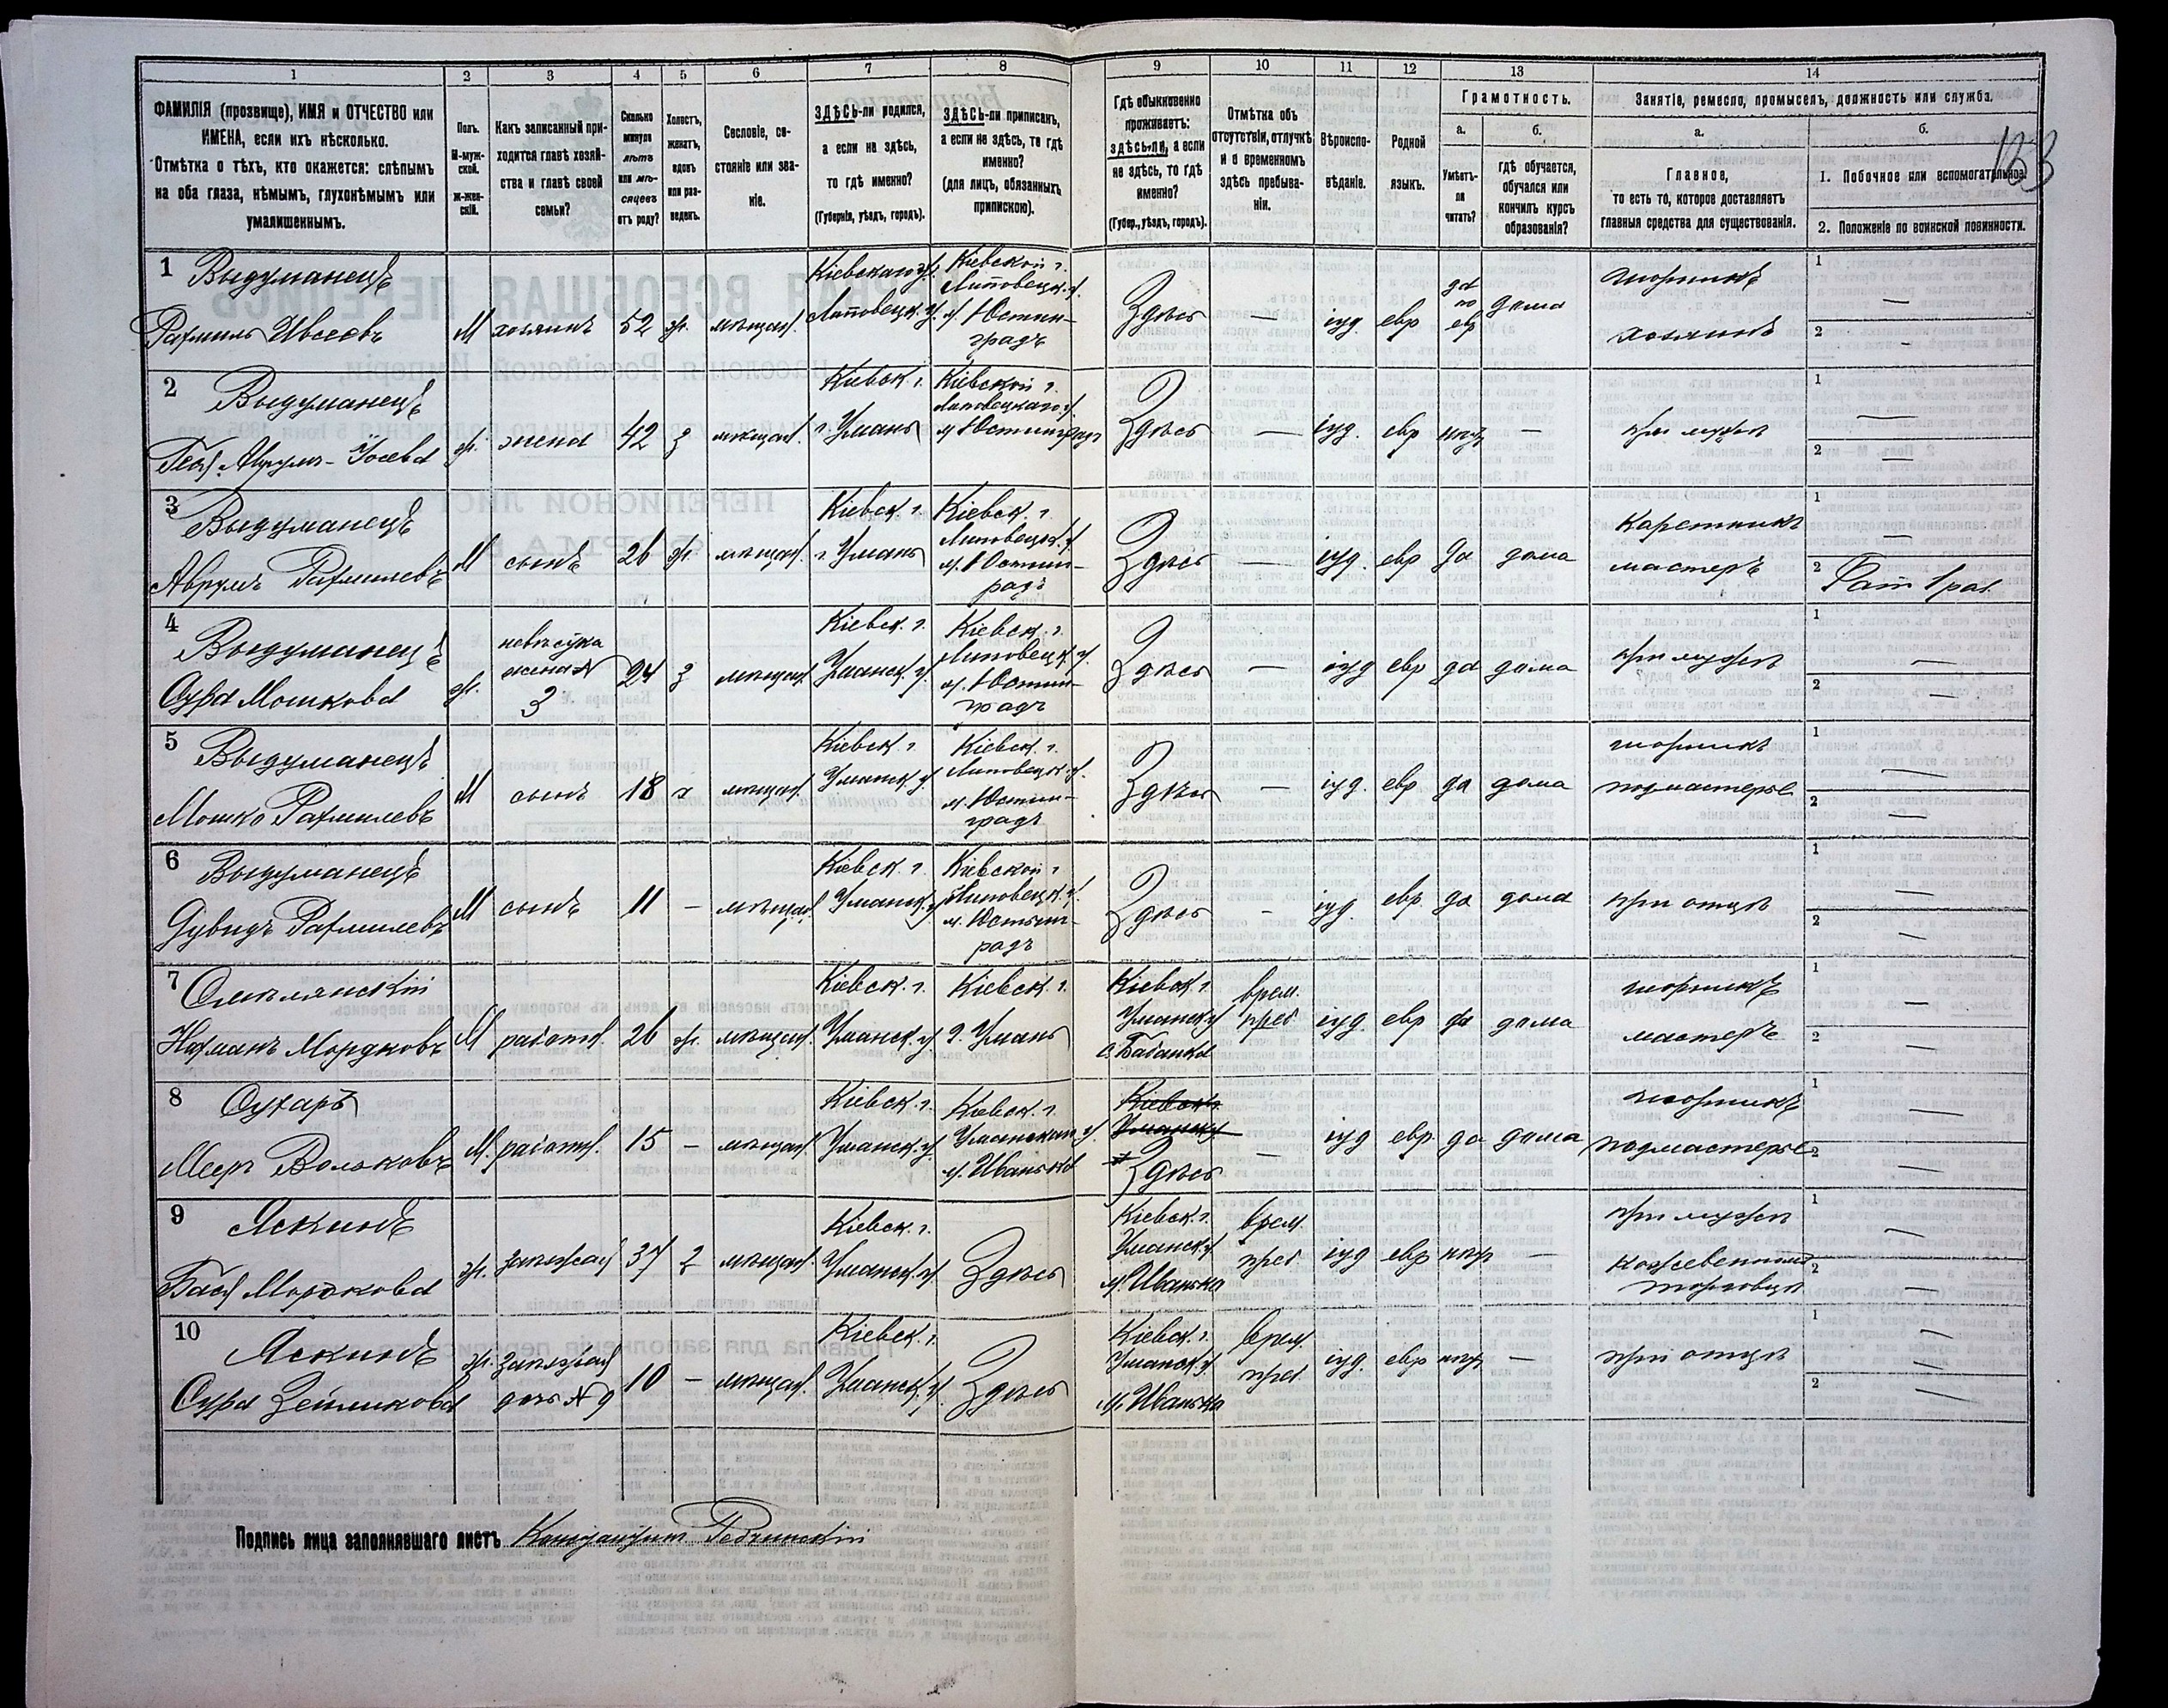 1 2 3 4 5 6 7 8 9 10 11 12 13 14
ФАМИЛІЯ (прозвище), ИМЯ и ОТЧЕСТВО или
ИМЕНА, если ихъ нѣсколько.
Отмѣтка о тѣхъ, кто окажется: слѣпымъ
на оба глаза, нѣмымъ, глухонѣмымъ или
умалишеннымъ.
Полъ.
М-муж-
ской.
ж-жен-
скій.
Какъ записанный при-
ходится главѣ хозяй-
ства и главѣ своей
семьи?
Сколько
минуло
лѣтъ
или мѣ-
сяцевъ
отъ роду?
Холостъ,
женатъ,
вдовъ
или раз-
веденъ.
Сословіе, со-
стояніе или зва-
ніе.
ЗДѢСЬ-ли родился,
а если не здѣсь,
то гдѣ именно?
(Губернія, уѣздъ, городъ).
ЗДѢСЬ-ли приписанъ,
а если не здѣсь, то гдѣ
именно?
(для лицъ, обязанныхъ
припискою).
Гдѣ обыкновенно
проживаетъ:
здѣсь-ли, а если
не здѣсь, то гдѣ
именно?
(Губер., уѣздъ, городъ).
Отмѣтка объ
отсутствіи, отлучкѣ
и о временномъ
здѣсь пребыва-
ніи.
Вѣроиспо-
вѣданіе.
Родной
языкъ.
Грамотность.
а.
Умѣетъ-
ли
читать?
б.
гдѣ обучается,
обучался или
кончилъ курсъ
образованія?
Занятіе, ремесло, промыселъ, должность или служба.
а.
Главное,
то есть то, которое доставляетъ
главныя средства для существованія.
б.
1. Побочное или вспомогательное.
2. Положеніе по воинской повинности.
1 Выдуманецъ
Рахмиль Ивсеевъ
М
хозяинъ
52
ж.
мѣщан.
Кіевская г.
Липовецк. у.
Кіевской г.
Липовецк. у.
м. Юстин-
градъ
Здѣсь
—
іуд.
евр
да
по
евр
дома
шорникъ
хозяинъ
1 —
2 —
2 Выдуманецъ
Авруль-Іосева
ж.
жена
42
з
мѣщан.
Кіевск. г.
г. Умань
Кіевской г.
Липовецкаго у.
м Юстинградъ
Здѣсь
—
іуд.
евр
нѣтъ
—
при мужѣ
1 —
2 —
3 Выдуманецъ
Аврумъ Рахмилевъ
М
сынъ
26
ж.
мѣщан.
Кіевск. г.
г. Умань
Кіевск. г.
Липовецк. у.
м. Юстин-
градъ
Здѣсь
—
іуд.
евр
да
дома
Каретникъ
мастеръ
1 —
2
4 Выдуманецъ
Сура Мошкова
ж.
невѣстка
жена №
3
24
з
мѣщан.
Кіевск. г.
Уманск. у.
Кіевск. г.
Липовецк. у.
м. Юстин-
градъ
Здѣсь
—
іуд
евр
да
дома
при мужѣ
1 —
2 —
5 Выдуманецъ
Мошко Рахмилевъ
М
сынъ
18
х
мѣщан.
Кіевск. г.
Уманск. у.
Кіевск. г.
Липовецк. у.
м. Юстин-
градъ
Здѣсь
—
іуд.
евр
да
дома
шорникъ
подмастерье
1 —
2 —
6 Выдуманецъ
Дувидъ Рахмилевъ
М
сынъ
11
—
мѣщан.
Кіевск. г.
Уманск. у.
Кіевской г.
Липовецк. у.
м. Юстин-
градъ
Здѣсь
—
іуд.
евр
да
дома
при отцѣ
1 —
2 —
7 Смѣлянскій
Нахманъ Мордковъ
М
работн.
26
ж.
мѣщан.
Кіевск. г.
Уманск. у.
Кіевск. г.
г. Умань
Кіевск. г.
Уманск. у.
с. Бабанка
врем.
преб
іуд.
евр
да
дома
шорникъ
мастеръ
1 —
2 —
8 Сухарь
Меер Волоковъ
М.
работн.
15
—
мѣщан.
Кіевск. г.
Уманск. у.
Кіевск. г.
Уманскаго у.
м. Иванька
Кіевск. г.
Уманск. у.
Здѣсь
—
іуд
евр.
да
дома
шорникъ
подмастерье
1 —
2 —
9 Яскинъ
Бася Мордкова
ж.
заѣзжая
37
з
мѣщан.
Кіевск. г.
Уманск. у.
Здѣсь
Кіевск. г.
Уманск. у.
м. Иванька
врем.
преб.
іуд
евр
нѣтъ
—
при мужѣ
кожевенномъ
торговцѣ
1 —
2 —
10 Яскинъ
Сура Зейликова
ж.
заѣзжая
дочь № 9
10
—
мѣщан.
Кіевск. г.
Уманск. у.
Здѣсь
Кіевск. г.
Уманск. у.
м. Иванька
врем.
преб.
іуд.
евр
нѣтъ
—
при отцѣ
1 —
2 —
Подпись лица заполнявшаго листъ